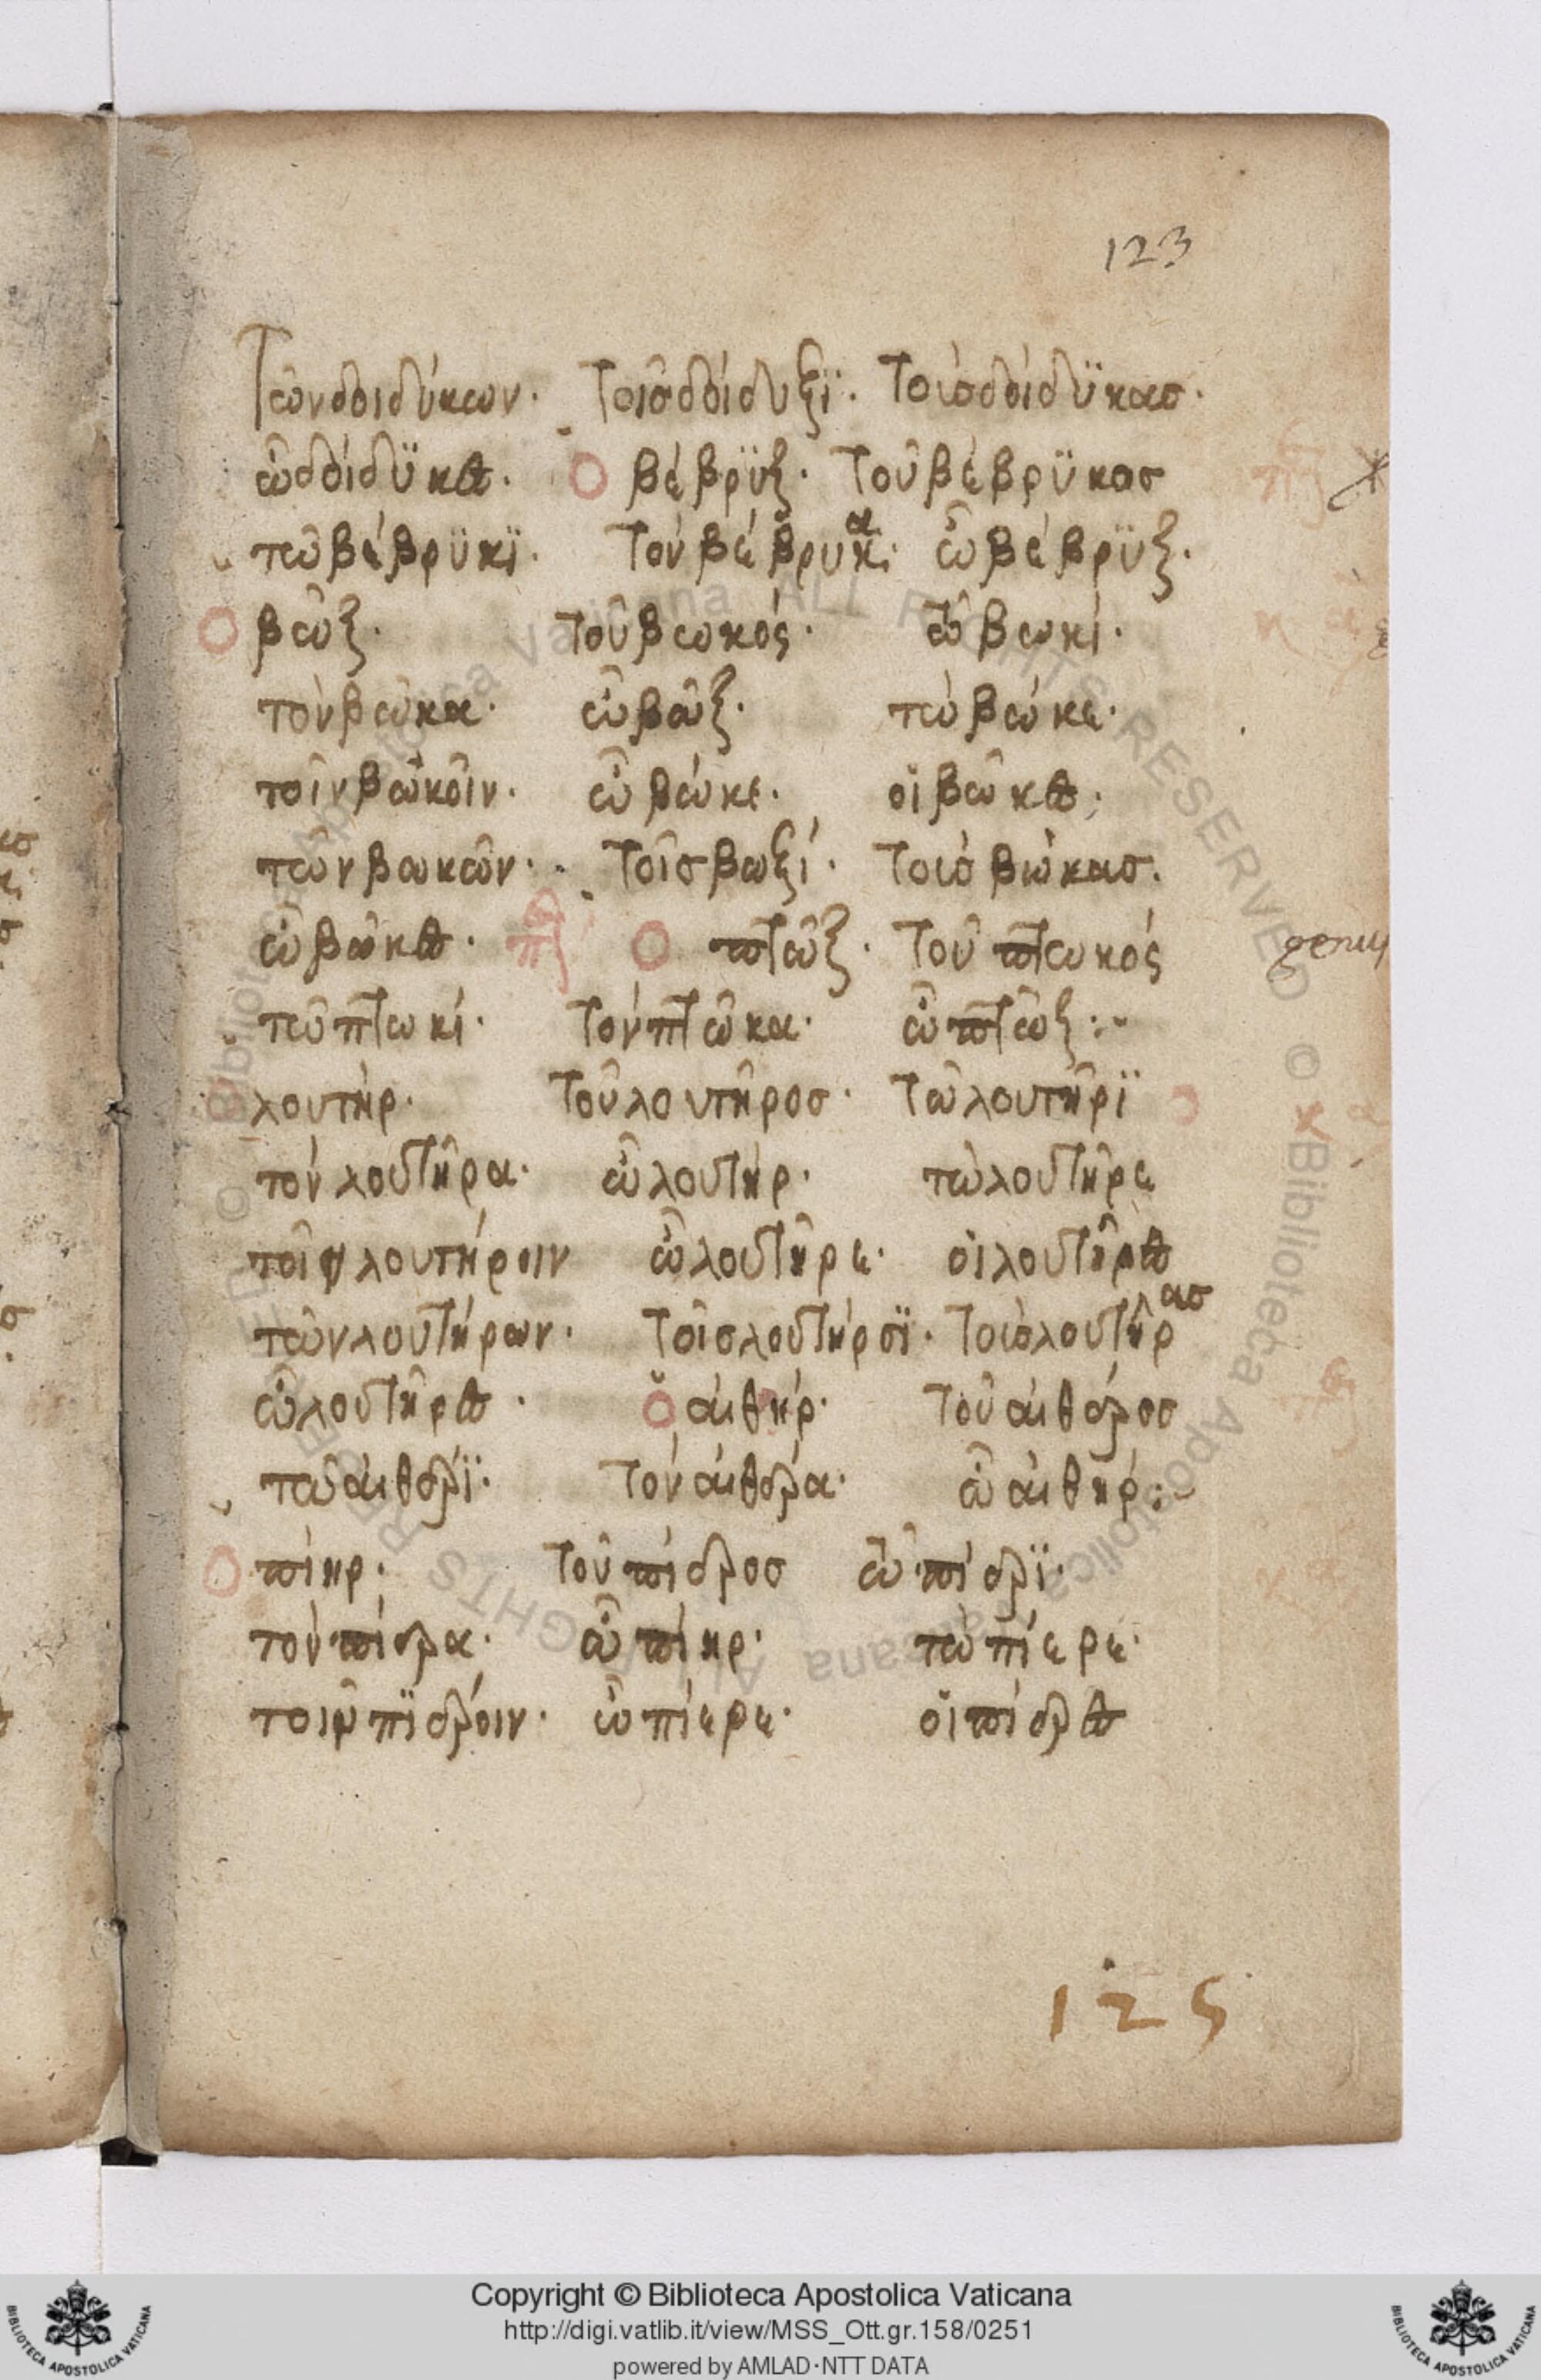 123
Τῶν δοιδύκων. Τοῖσ δοίδυξϊ. Τοὺσ δοίδϋκασ.
ὦ δοίδϋκες. Ὁ βέβρϋξ. Τοῦ βέβρϋκοσ
τῶ βέβρϋκϊ. Τὸν βέβρυκα. ὦ βέβρϋξ.
Ὁ βὼξ. Τοῦ βωκός. τῶ βωκί.
τὸν βῶκα. ὦ βὼξ. τὼ βώκε.
τοῖν βωκοῖν. ὦ βώκε. οἱ βῶκες.
τῶν βωκῶν. Τοῖσ βωξί. Τοὺσ βώκασ.
ὦ βῶκες. Ὁ πτὼξ. Τοῦ πτωκός
τῶ πτωκί. Τὸν πτῶκα. ὦ πτὼξ:
λουτήρ. Τοῦ λουτῆροσ. Τῶ λουτῆρϊ
τὸν λουτῆρα. ὦ λουτήρ. τὼ λουτῆρε
τοῖν λουτήροιν ὦ λουτῆρε. οἱ λουτῆρες
τῶν λουτήρων. Τοῖσ λουτήρσϊ. Τοὺσ λουτῆρασ
ὦ λουτῆρες. ὁ αἰθήρ. Τοῦ αἰθέροσ
τῶ αἰθέρϊ. Τὸν αἰθέρα. ὦ αἰθήρ:
Ὁ πίηρ. Τοῦ πίεροσ τῶ πίερϊ.
τὸν πίερα. ὦ πίηρ. τὼ πίερε.
τοῖν πϊέροιν. ὦ πίερε. οἱ πίερες
125
Copyright © Biblioteca Apostolica Vaticana
http://digi.vatlib.it/view/MSS_Ott.gr.158/0251
powered by AMLAD·NTT DATA